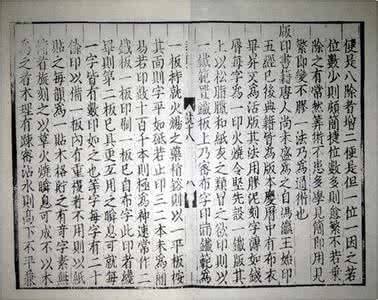 便是八除者增二便是但一位一因之若
位數少則頗簡捷位數多則愈繁不若乘
除之有常然算術不患多學見簡即用見
繁即變不膠一法乃為通術也
版印書籍唐人尚未盛為之自馮瀛王始印
五經已後典籍皆為版本慶曆中有布衣
畢昇又為活版其法用膠泥刻字薄如錢
脣每字為一印火燒令堅先設一鐵版其
上以松脂臘和紙灰之類冒之欲印則以
一鐵範置鐵板上乃密布字印滿鐵範為
八
一板持就火煬之藥稍鎔則以一平板按
其面則字平如砥若止印三二本未為簡
易若印數十百千本則極為神速常作二
鐵板一板印刷一板已自布字此印者纔
畢則第二板已具更互用之瞬息可就每
一字皆有數印如之也等字每字有二十
餘印以備一板內有重複者不用則以紙
貼之每韻為一貼木格貯之有奇字素無
備者旋刻之以草火燒瞬息可成不以木
為之者木理有疎密沾水則高下不平兼